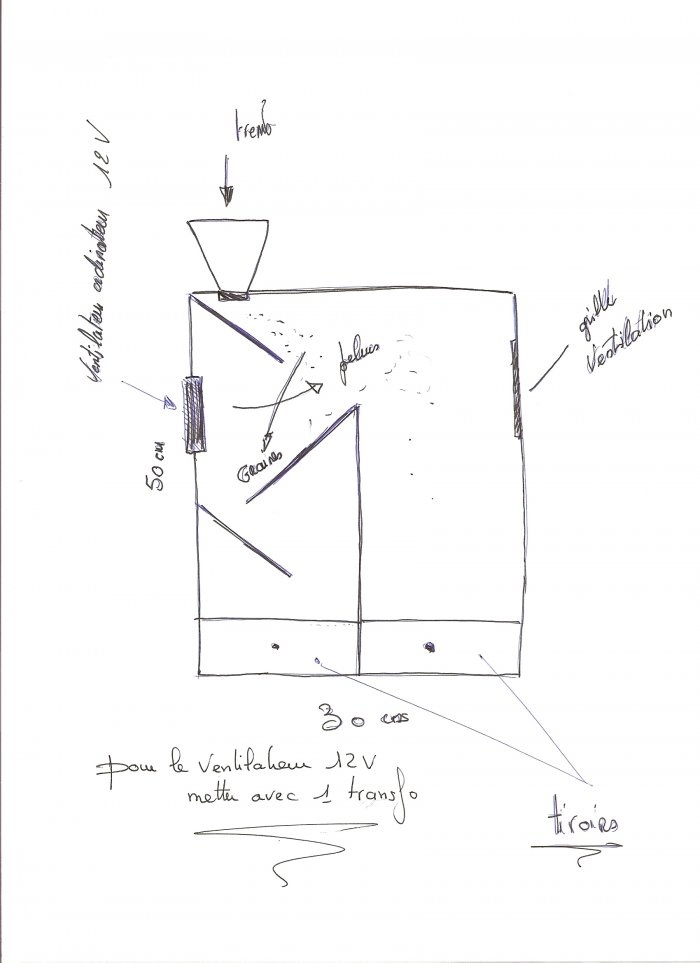 Ventilateur ordinateur 12V
grille
Ventilation
pelures
Graines
50 cm
30 cms
pour le Ventilateur 12V
mettre avec 1 transfo
tiroirs